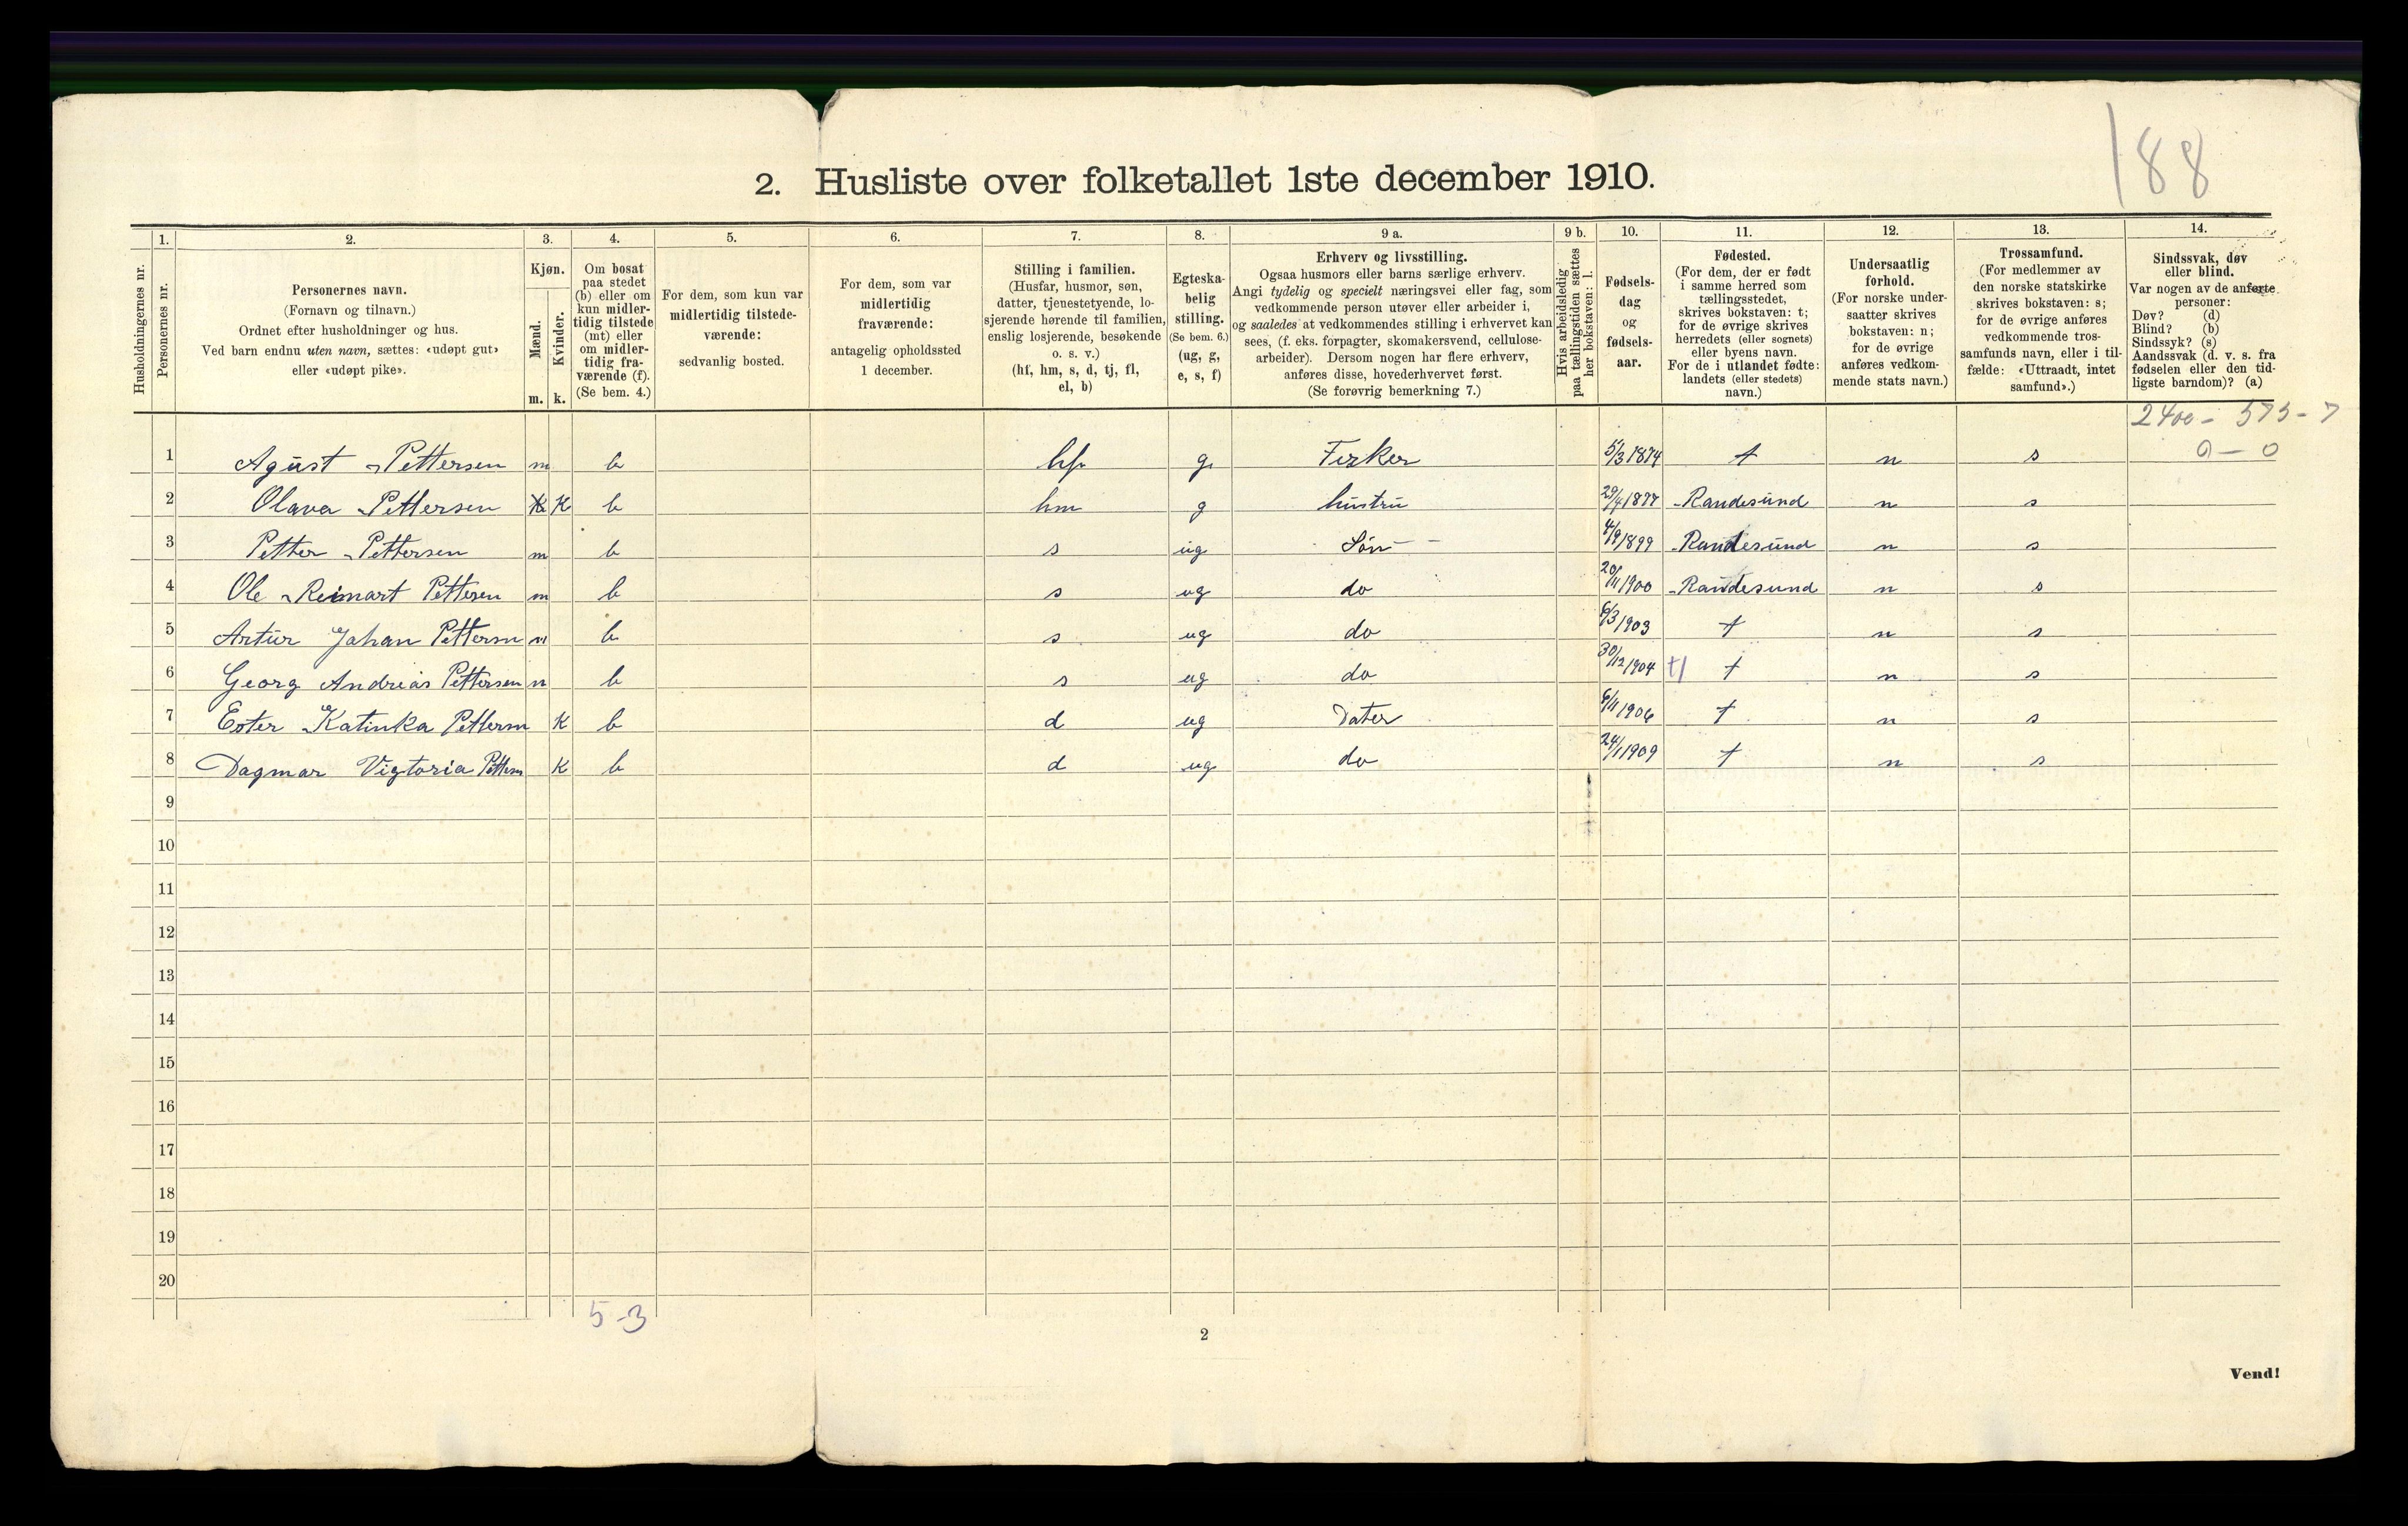 188
2. Husliste over folketallet 1ste december 1910.
Husholdningernes nr.
1. Personernes nr.
2. Personernes navn.
(Fornavn og tilnavn.)
Ordnet efter husholdninger og hus.
Ved barn endnu uten navn, sættes: «udøpt gut»
eller «udøpt pike».
3. Kjøn.
Mænd. m.
Kvinder. k.
4. Om bosat
paa stedet
(b) eller om
kun midler-
tidig tilstede
(mt) eller
om midler-
tidig fra-
værende (f).
(Se bem. 4.)
5. For dem, som kun var
midlertidig tilstede-
værende:
sedvanlig bosted.
6. For dem, som var
midlertidig
fraværende:
antagelig opholdssted
1 december.
7. Stilling i familien.
(Husfar, husmor, søn,
datter, tjenestetyende, lo-
sjerende hørende til familien,
enslig losjerende, besøkende
o. s. v.)
(hf, hm, s, d, tj, fl,
el, b)
8. Egteska-
belig
stilling.
(Se bem. 6.)
(ug, g,
e, s, f)
9 a. Erhverv og livsstilling.
Ogsaa husmors eller barns særlige erhverv.
Angi tydelig og specielt næringsvei eller fag, som
vedkommende person utøver eller arbeider i,
og saaledes at vedkommendes stilling i erhvervet kan
sees, (f. eks. forpagter, skomakersvend, cellulose-
arbeider). Dersom nogen har flere erhverv,
anføres disse, hovederhvervet først.
(Se forøvrig bemerkning 7.)
9 b. Hvis arbeidsledig
paa tællingstiden sættes
her bokstaven: l.
10. Fødsels-
dag
og
fødsels-
aar.
11. Fødested.
(For dem, der er født
i samme herred som
tællingsstedet,
skrives bokstaven: t;
for de øvrige skrives
herredets (eller sognets)
eller byens navn.
For de i utlandet fødte:
landets (eller stedets)
navn.)
12. Undersaatlig
forhold.
(For norske under-
saatter skrives
bokstaven: n;
for de øvrige
anføres vedkom-
mende stats navn.)
13. Trossamfund.
(For medlemmer av
den norske statskirke
skrives bokstaven: s;
for de øvrige anføres
vedkommende tros-
samfunds navn, eller i til-
fælde: «Uttraadt, intet
samfund».)
14. Sindssvak, døv
eller blind.
Var nogen av de anførte
personer:
Døv? (d)
Blind? (b)
Sindssyk? (s)
Aandssvak (d. v. s. fra
fødselen eller den tid-
ligste barndom)? (a)
2400 - 575 - 7
0 — 0
1 Agust Pettersen m b hf g Fisker 5/3 1874 t n s
2 Olava Pettersen K b hm g hustru 29/4 1877 Randesund n s
3 Petter Pettersen m b s ug Sön 4/9 1899 Randesund n s
4 Ole Reimart Pettersen m b s ug do 20/11 1900 Randesund n s
5 Artur Johan Pettersn m b s ug do 6/3 1903 t n s
6 Georg Andreas Pettersen m b s ug do 30/12 1904 t n s
7 Ester Katinka Pettersn K b d ug Dater 6/11 1906 t n s
8 Dagmar Vigtoria Pettersn K b d ug do 24/1 1909 t n s
9
10
11
12
13
14
15
16
17
18
19
20
5-3
2
Vend!